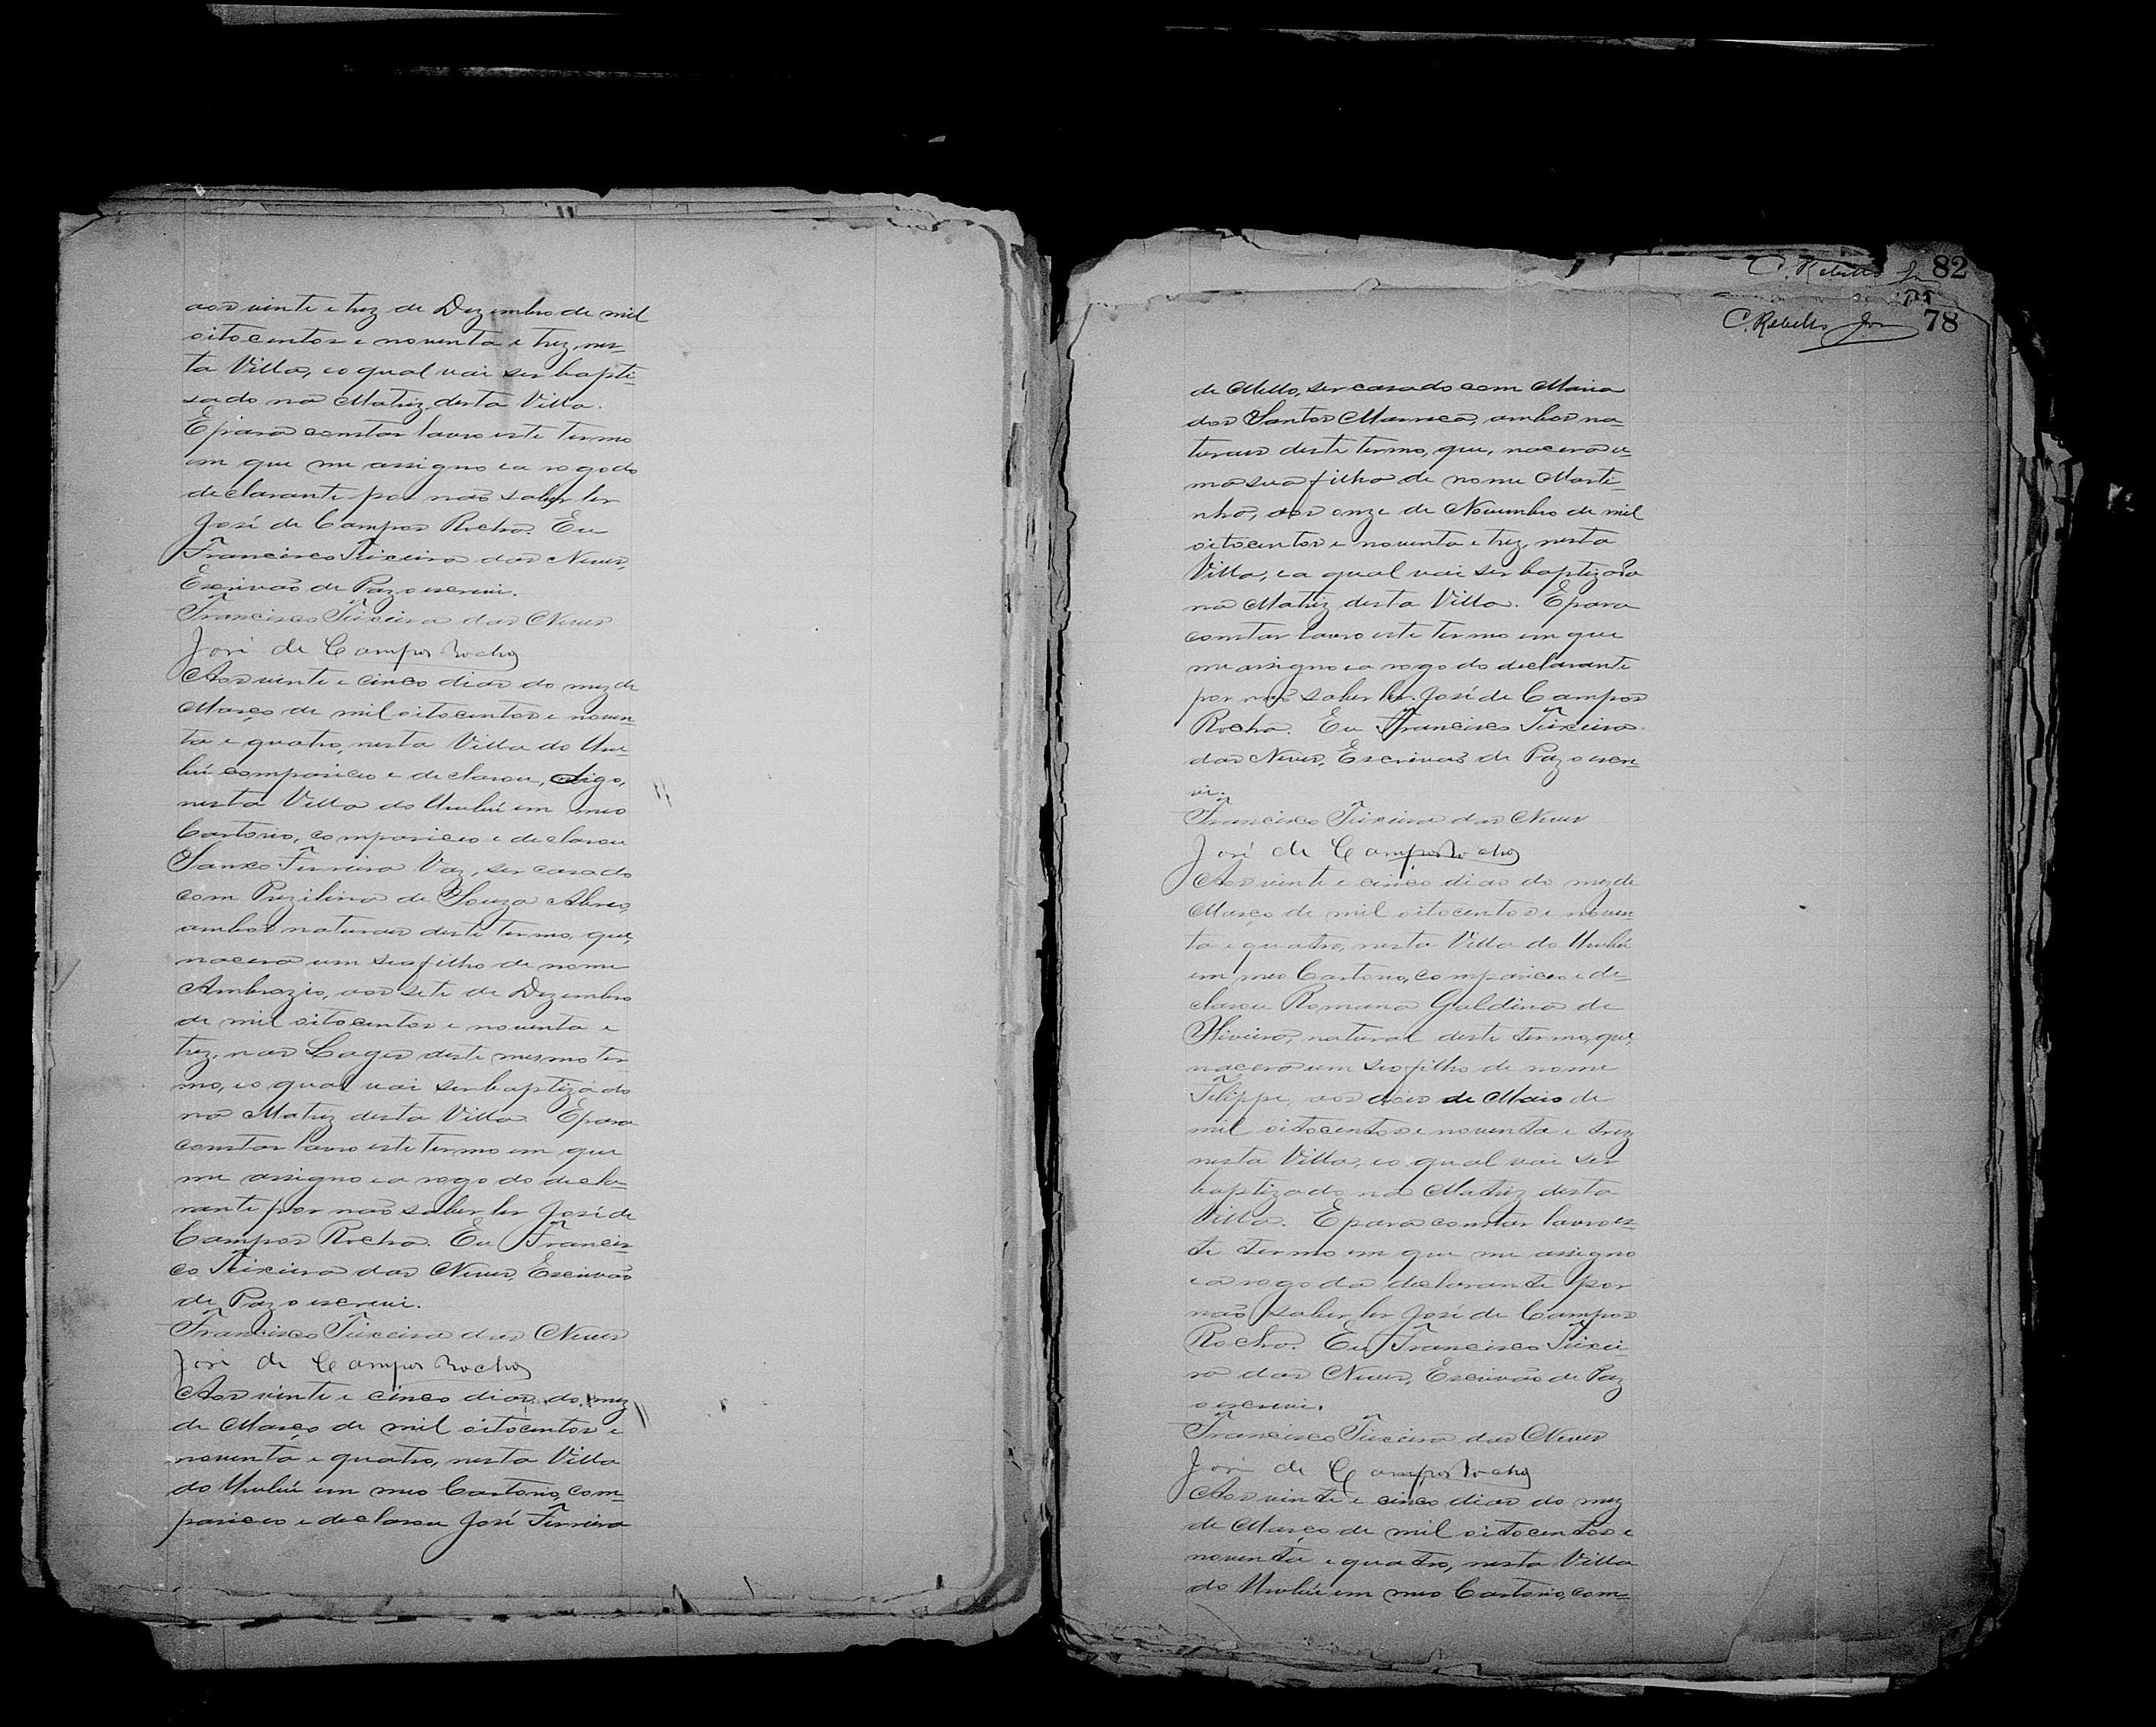 aos vinte e trez de Dezembro de mil
oitocentos e noventa e trez, nes-
ta Villa, e o qual vai ser bapti-
sado na Matriz desta Villa.
E para constar lavro este termo
em que me assigno e a rogo do
declarante por não saber ler
José de Campos Rocha. Eu
Francisco Teixeira das Neves,
Escrivão de Paz o escrevi.
Francisco Teixeira das Neves
José de Campos Rocha
Aos vinte e cinco dias do mez de
Março de mil oitocentos e noven-
ta e quatro, nesta Villa do Uru-
bú compareceo e declarou, digo,
nesta Villa do Urubú em meo
Cartorio, compareceo e declarou
Ferreira Vaz, ser casado
com de Souza Abreo,
ambos naturaes deste termo, que,
nacera um seo filho de nome
Ambrozio, aos sete de Dezembro
de mil oitocentos e noventa e
trez, nas Lages deste mesmo ter
mo, e o qual vai ser baptizado
na Matriz desta Villa. E para
constar lavro este termo em que
me assigno e a rogo do decla-
rante por não saber ler José de
Campos Rocha. Eu Francis-
co Teixeira das Neves, Escrivão
de Paz o escrevi.
Francisco Teixeira das Neves
José de Campos Rocha
Aos vinte e cinco dias do mez
de Março de mil oitocentos e
noventa e quatro, nesta Villa
do Urubú em meo Cartorio, com-
pareceo e declarou José Ferreira
C. Rebello Jor 82
C. Rebello Jor 78
de Mello, ser casado com Maria
dos Santos, ambos na-
turaes deste termo, que, nacera u-
ma sua filha de nome Marti-
nha, aos onze de Novembro de mil
oitocentos e noventa e trez, nesta
Villa, e a qual vai ser baptizada
na Matriz desta Villa. E para
constar lavro este termo em que
me assigno e a rogo do declarante
por não saber ler José de Campos
Rocha. Eu Francisco Teixeira
das Neves, Escrivão de Paz o escre-
vi.
Francisco Teixeira das Neves
José de Campos Rocha
Aos vinte e cinco dias do mez de
Março de mil oitocentos e noven
ta e quatro, nesta Villa do Urubú
em meo Cartorio, compareceo e de-
clarou Romana Galdina de
Oliveira, natural deste termo, que,
nacera um seo filho de nome
Filippe, aos dois de Maio de
mil oitocentos e noventa e trez
nesta Villa, e o qual vai ser
baptizado na Matriz desta
Villa. E para constar lavro es-
te termo em que me assigno
e a rogo da declarante por
não saber ler José de Campos
Rocha. Eu Francisco Teixei-
ra das Neves, Escrivão de Paz
o escrevi.
Francisco Teixeira das Neves
José de Campos Rocha
Aos vinte e cinco dias do mez
de Março de mil oitocentos e
noventa e quatro, nesta Villa
do Urubú em meo Cartorio, com-